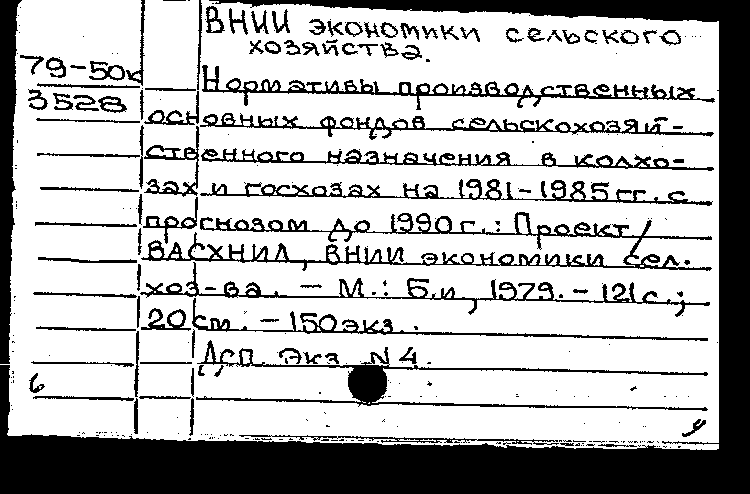 ВНИИ экономики сельского
хозяйства.
79-50к
3528
Нормативы производственных
основных фондов сельскохозяй-
ственного назначения в колхо-
зах и госхозах на 1981-1985 гг. с
прогнозом до 1990 г.: Проект/
ВАСХНИЛ, ВНИИ экономики сел.
хоз-ва. - М.: Б.и, 1979. - 121 с.;
20 см. - 150 экз.
Дсп. Экз. N 4.
6